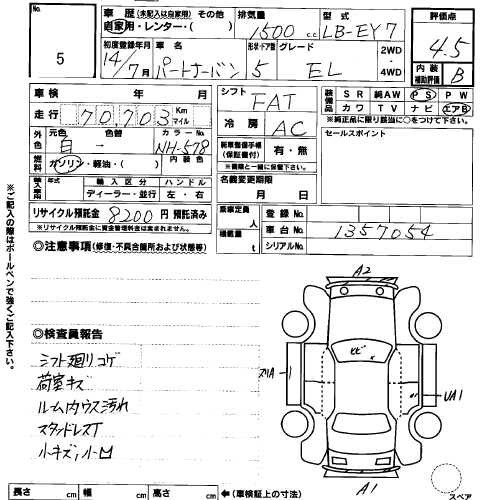 No.
5
車歴 (未記入は自家用) その他
自家用・レンター・( )
排気量
1500 cc
型式
LB-EY7
評価点
4.5
初度登録年月
14/7月
車名
パートナーバン
形状・ドア数
5
グレード
EL
2WD
・
4WD
内装
補助評価
B
車検 年 月
走行 70703 Km
マイル
シフト
FAT
装備品
SR 純AW PS PW
カワ TV ナビ エアB
※純正品に限り該当に○をつけて下さい。
外色
元色
白
色替
→
カラーNo.
NH-578
冷房
AC
セールスポイント
燃料
ガソリン・軽油・( )
内装色
新車整備手帳
(保証書付)
有・無
※書類と一緒に保管下さい。
輸入車
年式
輸入区分
ディーラー・並行
ハンドル
左・右
名義変更期限
月 日
リサイクル預託金 8200 円 預託済み
※リサイクル預託金に資金管理料金は含まれません。
乗車定員
人
積載量
t
登録No.
車台No.
1357054
シリアルNo.
◎注意事項 (修復・不具合箇所および状態等)
※ご記入の際はボールペンで強くご記入下さい。
◎検査員報告
シフト廻りコゲ
荷室キズ
ルーム内ウス汚れ
スタッドレスT
小キズ、小凹
A2
ヒビ
スリA
UA1
A1
スペア
長さ cm 幅 cm 高さ cm ←(車検証上の寸法)